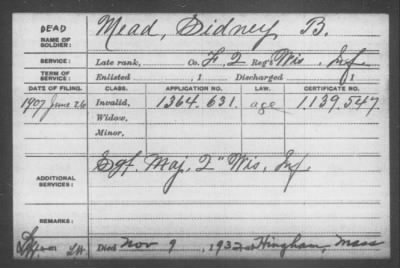 DEAD
NAME OF SOLDIER: Mead, Sidney B.
SERVICE: Late rank, Co. F, 2 Reg't Wis, Inf
TERM OF SERVICE: Enlisted , 1 Discharged , 1
DATE OF FILING. CLASS. APPLICATION NO. LAW. CERTIFICATE NO.
1907 June 26 Invalid, 1364.631. age 1.139.547
Widow,
Minor,
ADDITIONAL SERVICES: Sgt. Maj. 2" Wis, Inf
REMARKS:
Died Nov 9, 1932 Hingham, Mass